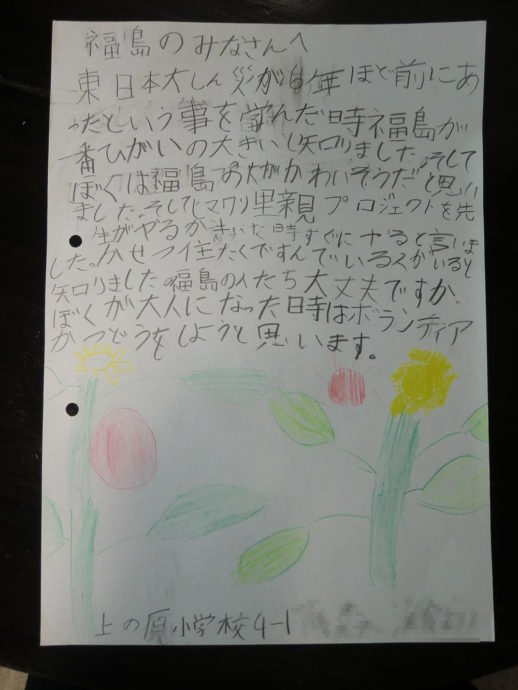 福島のみなさんへ
東日本大しん災が6年ほど前にあ
ったという事を学んだ時福島が
一番ひがいの大きい知りました。そして
ぼくは福島の人がかわいそうだと思い
ました。そしてヒマワリ里親プロジェクトを先
生がやるかきいた時すぐにやると言いま
した。かせつ住たくですんでいる人がいると
知りました。福島の人たち大丈夫ですか。
ぼくが大人になった時はボランティア
かつどうをしようと思います。
上の原小学校4-1